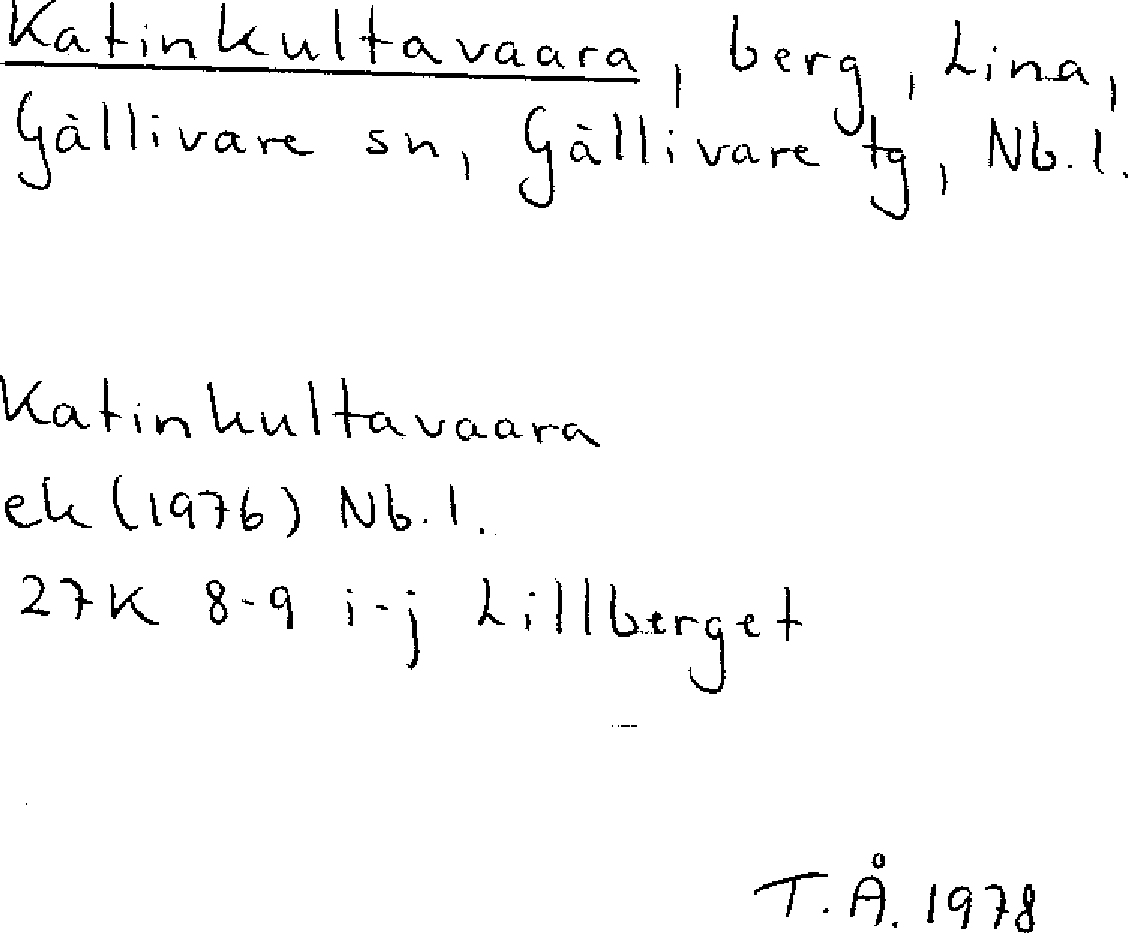 Katinkultavaara, berg, Lina,
Gällivare sn, Gällivare tg, Nb.l.
Katinkultavaara
ek (1976) Nb.l.
27K 8-9 i-j Lillberget
T.Å. 1978